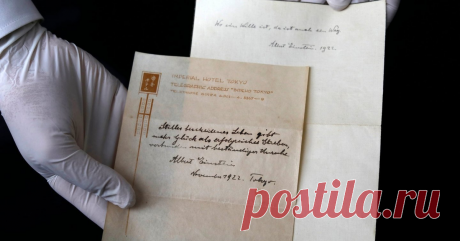 Wo ein Wille ist, da ist auch ein Weg
Albert Einstein. 1922.
IMPERIAL HOTEL TOKYO
Stilles bescheidenes Leben gibt
mehr Glück als erfolgreiches Streben,
verbunden mit beständiger Unruhe.
Albert Einstein
November 1922. Tokyo.
postila.ru